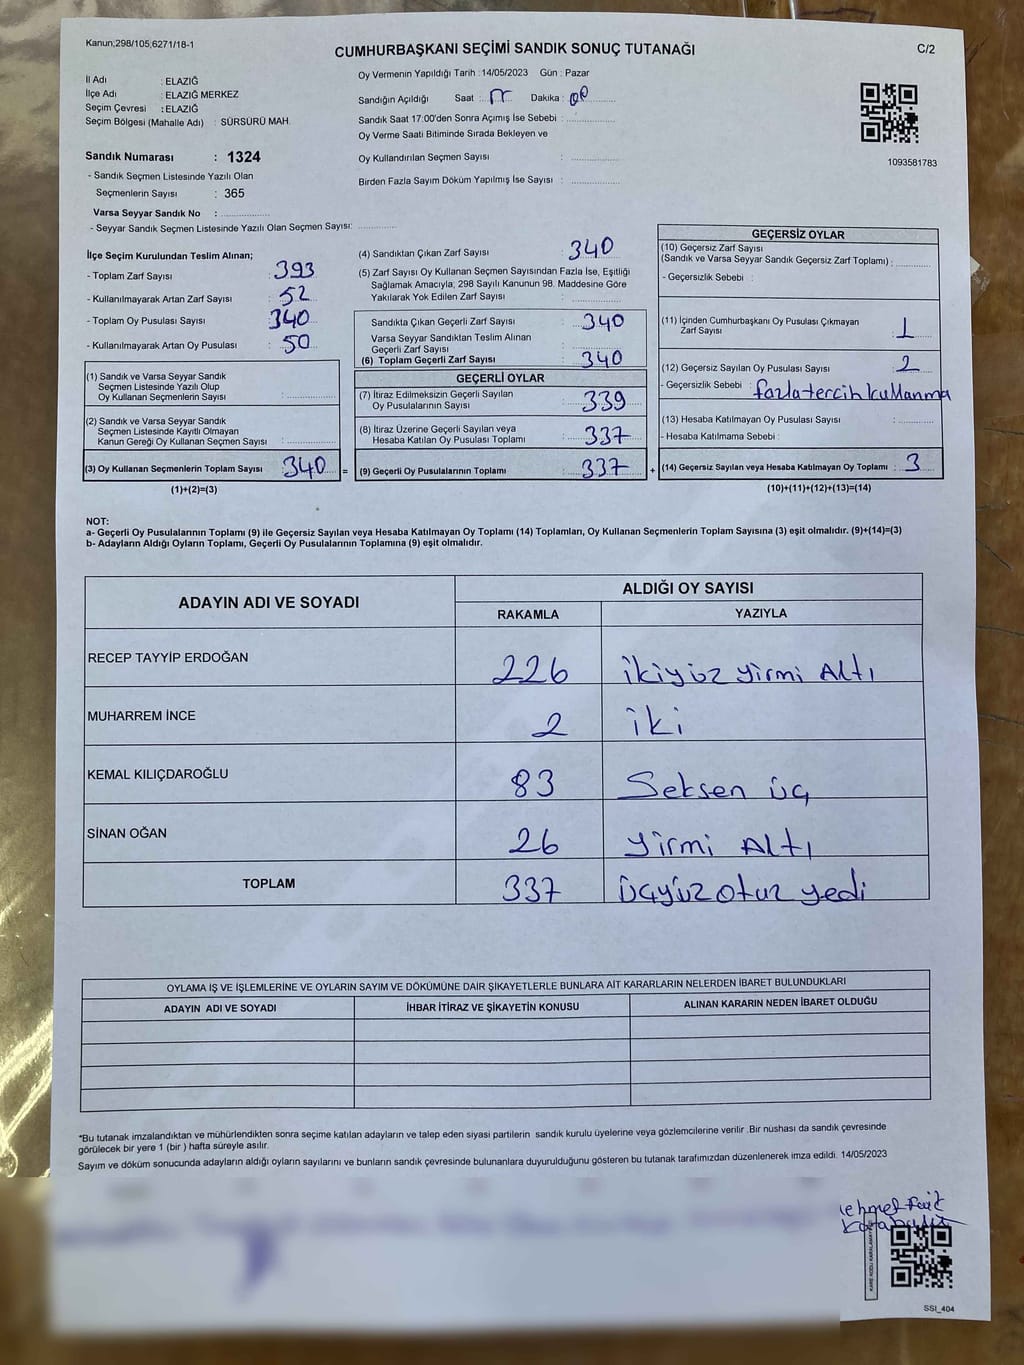 Kanun;298/105,6271/18-1
CUMHURBAŞKANI SEÇİMİ SANDIK SONUÇ TUTANAĞI
C/2
İl Adı : ELAZIĞ
İlçe Adı : ELAZIĞ MERKEZ
Seçim Çevresi : ELAZIĞ
Seçim Bölgesi (Mahalle Adı) : SÜRSÜRÜ MAH.
Sandık Numarası : 1324
- Sandık Seçmen Listesinde Yazılı Olan
Seçmenlerin Sayısı : 365
Varsa Seyyar Sandık No :
- Seyyar Sandık Seçmen Listesinde Yazılı Olan Seçmen Sayısı:
Oy Vermenin Yapıldığı Tarih : 14/05/2023 Gün : Pazar
Sandığın Açıldığı Saat : Dakika :
Sandık Saat 17:00'den Sonra Açımış İse Sebebi :
Oy Verme Saati Bitiminde Sırada Bekleyen ve
Oy Kullandırılan Seçmen Sayısı :
Birden Fazla Sayım Döküm Yapılmış İse Sayısı :
1093581783
İlçe Seçim Kurulundan Teslim Alınan;
- Toplam Zarf Sayısı : 393
- Kullanılmayarak Artan Zarf Sayısı : 52
- Toplam Oy Pusulası Sayısı : 340
- Kullanılmayarak Artan Oy Pusulası : 50
(1) Sandık ve Varsa Seyyar Sandık
Seçmen Listesinde Yazılı Olup
Oy Kullanan Seçmenlerin Sayısı :
(2) Sandık ve Varsa Seyyar Sandık
Seçmen Listesinde Kayıtlı Olmayan
Kanun Gereği Oy Kullanan Seçmen Sayısı :
(3) Oy Kullanan Seçmenlerin Toplam Sayısı : 340 =
(1)+(2)=(3)
(4) Sandıktan Çıkan Zarf Sayısı : 340
(5) Zarf Sayısı Oy Kullanan Seçmen Sayısından Fazla İse, Eşitliği
Sağlamak Amacıyla, 298 Sayılı Kanunun 98. Maddesine Göre
Yakılarak Yok Edilen Zarf Sayısı :
Sandıkta Çıkan Geçerli Zarf Sayısı : 340
Varsa Seyyar Sandıktan Teslim Alınan
Geçerli Zarf Sayısı :
(6) Toplam Geçerli Zarf Sayısı : 340
GEÇERLİ OYLAR
(7) İtiraz Edilmeksizin Geçerli Sayılan
Oy Pusulalarının Sayısı : 339
(8) İtiraz Üzerine Geçerli Sayılan veya
Hesaba Katılan Oy Pusulası Toplamı : 337
(9) Geçerli Oy Pusulalarının Toplamı : 337 +
GEÇERSİZ OYLAR
(10) Geçersiz Zarf Sayısı
(Sandık ve Varsa Seyyar Sandık Geçersiz Zarf Toplamı) :
- Geçersizlik Sebebi :
(11) İçinden Cumhurbaşkanı Oy Pusulası Çıkmayan
Zarf Sayısı : 1
(12) Geçersiz Sayılan Oy Pusulası Sayısı : 2
- Geçersizlik Sebebi : fazla tercih kullanma
(13) Hesaba Katılmayan Oy Pusulası Sayısı :
- Hesaba Katılmama Sebebi :
(14) Geçersiz Sayılan veya Hesaba Katılmayan Oy Toplamı : 3
(10)+(11)+(12)+(13)=(14)
NOT:
a- Geçerli Oy Pusulalarının Toplamı (9) ile Geçersiz Sayılan veya Hesaba Katılmayan Oy Toplamı (14) Toplamları, Oy Kullanan Seçmenlerin Toplam Sayısına (3) eşit olmalıdır. (9)+(14)=(3)
b- Adayların Aldığı Oyların Toplamı, Geçerli Oy Pusulalarının Toplamına (9) eşit olmalıdır.
ADAYIN ADI VE SOYADI
ALDIĞI OY SAYISI
RAKAMLA YAZIYLA
RECEP TAYYİP ERDOĞAN 226 ikiyüz yirmi Altı
MUHARREM İNCE 2 iki
KEMAL KILIÇDAROĞLU 83 Seksen üç
SİNAN OĞAN 26 yirmi Altı
TOPLAM 337 üçyüz otuz yedi
OYLAMA İŞ VE İŞLEMLERİNE VE OYLARIN SAYIM VE DÖKÜMÜNE DAİR ŞİKAYETLERLE BUNLARA AİT KARARLARIN NELERDEN İBARET BULUNDUKLARI
ADAYIN ADI VE SOYADI İHBAR İTİRAZ VE ŞİKAYETİN KONUSU ALINAN KARARIN NEDEN İBARET OLDUĞU
*Bu tutanak imzalandıktan ve mühürlendikten sonra seçime katılan adayların ve talep eden siyasi partilerin sandık kurulu üyelerine veya gözlemcilerine verilir .Bir nüshası da sandık çevresinde
görülecek bir yere 1 (bir ) hafta süreyle asılır.
Sayım ve döküm sonucunda adayların aldığı oyların sayılarını ve bunların sandık çevresinde bulunanlara duyurulduğunu gösteren bu tutanak tarafımızdan düzenlenerek imza edildi. 14/05/2023
SSI_404